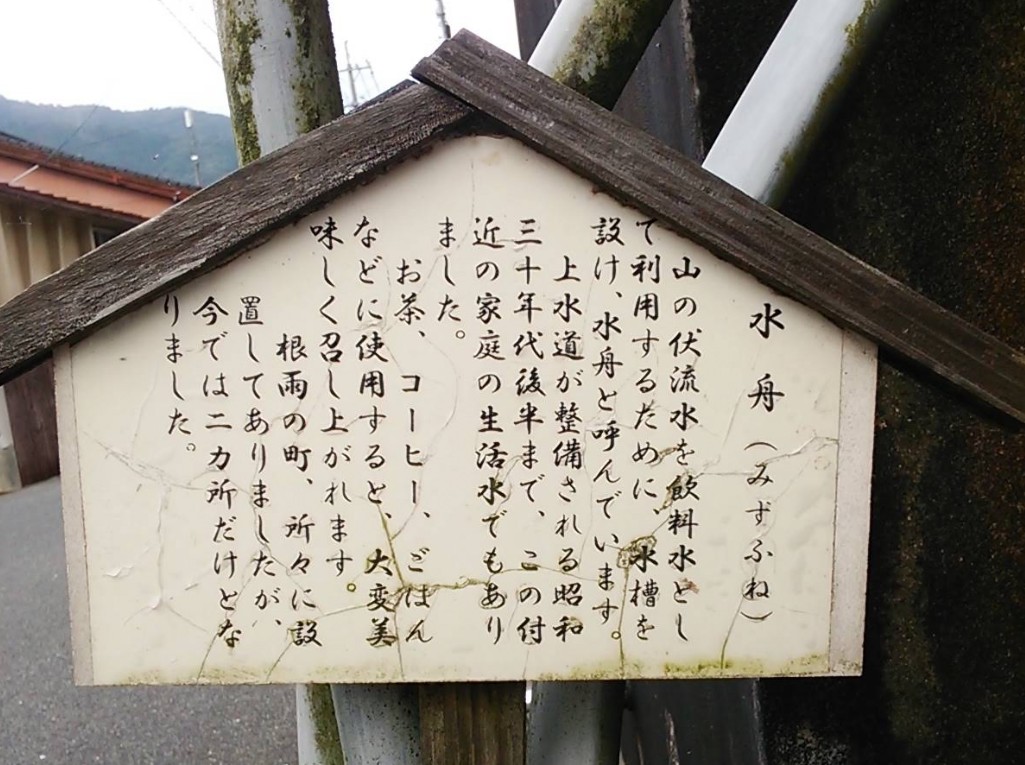 水舟(みずふね)
山の伏流水を飲料水とし
て利用するために、水槽を
設け、水舟と呼んでいます。
上水道が整備される昭和
三十年代後半まで、この付
近の家庭の生活水でもあり
ました。
お茶、コーヒー、ごはん
などに使用すると、大変美
味しく召し上がれます。
根雨の町、所々に設
置してありましたが、
今では二カ所だけとな
りました。